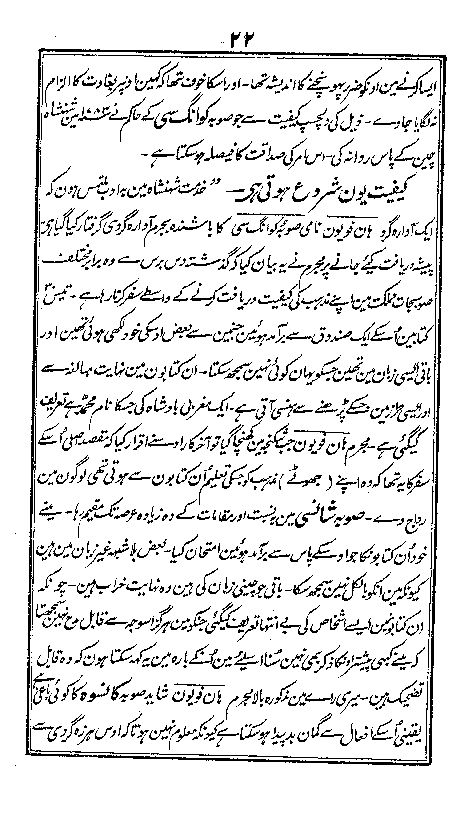 ۲۲
ایسا کرنے مین اونکو ضرر پہونچنے کا اندیشہ تھا۔ اور اسکا خوف تھا کہ کہین اونپر بغاوت کا الزام
نہ لگایا جاوے۔ ذیل کی دلچسپ کیفیت سے جو صوبہ کوانگ سی کے حاکم نے مین شہنشاہ
چین کے پاس روانہ کی۔ اس امر کی صداقت کا فیصلہ ہو سکتا ہے۔
کیفیت یون شروع ہوتی ہی۔ "خدمت شہنشاہ مین بہ ادب ملتمس ہون کہ
ایک آوارہ گرد ہان فویون نامی صوبہ کوانگ سی کا باشندہ بجرم آوارہ گردی گرفتار کیا گیا ہی
پیشہ دریافت کیئے جانے پر مجرم نے یہ بیان کیا کہ گذشتہ دس برس سے وہ برابر مختلف
صوبیجات مملکت مین اپنے مذہب کی کیفیت دریافت کرنے کے واسطے سفر کرتا رہا ہے۔ تیس
کتابین اُسکے ایک صندوق سے برآمد ہوئین جنمین سے بعض اوسکی خود لکھی ہوئی تھین اور
باقی ایسی زبان مین تھین جسکو یہان کوئی نہین سمجھ سکتا۔ ان کتابون مین نہایت مبالغہ سے
اور ایسی طرز مین جسکے پڑھنے سے ہنسی آتی ہے۔ ایک مغربی بادشاہ کی جسکا نام محمدؐ ہے تعریف
کیگئی ہے۔ مجرم ہان فویون جب شکنجہ مین کھینچا گیا تو آخر کار اوسنے اقرار کیا کہ مقصد اصلی اُسکے
سفر کا یہ تھا کہ وہ اپنے (جھوٹے) مذہب کو جسکی تعلیم اُن کتابون سے ہوتی تھی لوگون مین
رواج دے۔ صوبہ شانسی مین بہ نسبت اور مقامات کے وہ زیادہ عرصہ تک مقیم رہا۔ مینے
خود اُن کتابونکا جو اوسکے پاس سے برآمد ہوئین امتحان کیا۔ بعض بلا شبہہ غیر زبان مین ہین
کیونکہ مین انکو بالکل نہین سمجھ سکا۔ باقی جو چینی زبان کی ہین وہ نہایت خراب ہین۔ چونکہ
ان کتابونمین ایسے اشخاص کی بے انتہا تعریف کیگئی جنکو مین ہرگز اسوجہ سے قابل مدح نہین سمجھتا
کہ مینے کبھی پیشتر اونکا ذکر بھی نہین سُنا اسلیئے مین اُنکے بارہ مین یہ کہہ سکتا ہون کہ وہ قابل
تضحیک ہین۔ میری راے مین مذکورہ بالا مجرم ہان فویون شاید صوبہ کانسوہ کا کوئی باغی ہے
یقینی اُسکے افعال سے گمان بد پیدا ہو سکتا ہے کیونکہ معلوم نہین ہوتا کہ اوس ہرزہ گردی سے